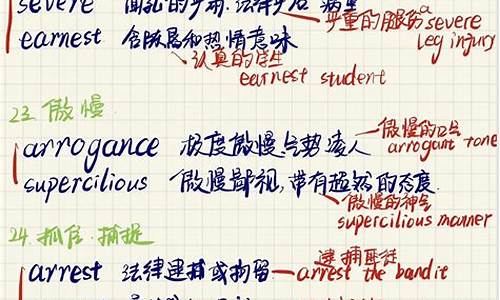 severe
严重的腿伤 a severe
leg injury
earnest
认真的学生
earnest student
23. 傲慢
arrogance 极度傲慢, 气势凌人
傲慢的口气
arrogant tone
supercilious 傲慢鄙视, 带有超然的态度
傲慢的神气
supercilious manner
24. 抓住. 捕捉
arrest 法律逮捕或拘留
逮捕匪徒
arrest the bandit